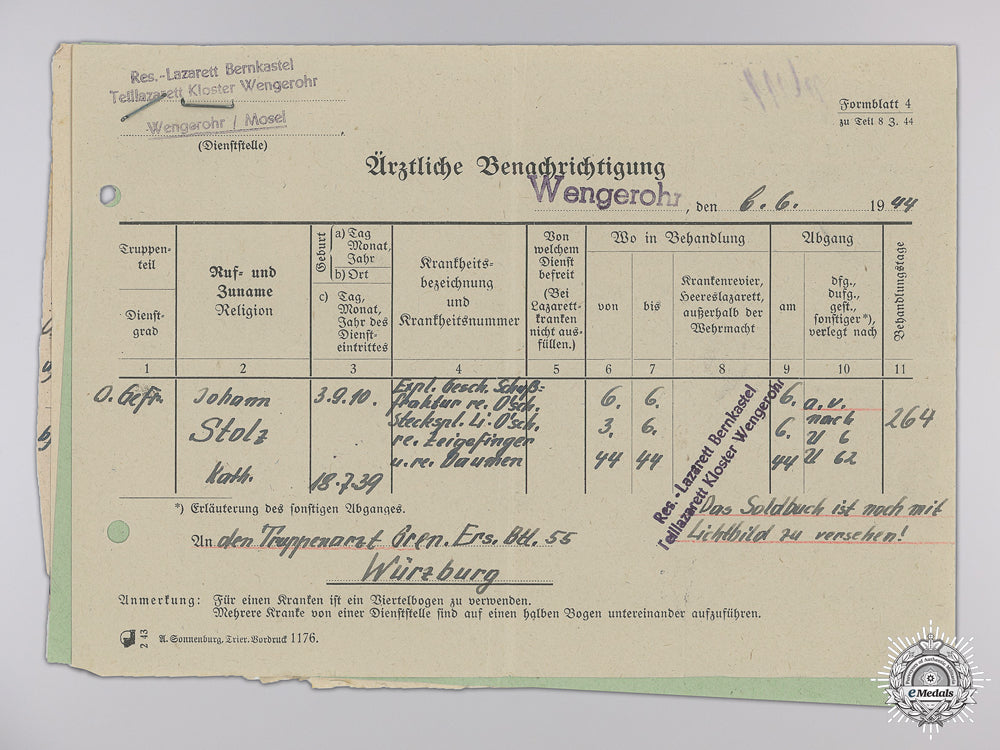 Res.-Lazarett Bernkastel
Teillazarett Kloster Wengerohr
Wengerohr / Mosel
(Dienststelle)
Formblatt 4
zu Teil 8 Z. 44
Ärztliche Benachrichtigung
Wengerohr, den 6. 6. 1944
Truppen-
teil
Dienst-
grad
Ruf- und
Zuname
Religion
Geburt
a) Tag
Monat,
Jahr
b) Ort
c) Tag,
Monat,
Jahr des
Dienst-
eintrittes
Krankheits-
bezeichnung
und
Krankheitsnummer
Von
welchem
Dienst
befreit
(Bei
Lazarett-
kranken
nicht aus-
füllen.)
Wo in Behandlung
von
bis
Krankenrevier,
Heereslazarett,
außerhalb der
Wehrmacht
Abgang
am
dfg.,
dufg.,
gest.,
sonstiger*),
verlegt nach
Behandlungstage
1 2 3 4 5 6 7 8 9 10 11
O. Gefr.
Johann
Stolz
Kath.
3.9.10.
18.7.39
Expl. Gesch. Schuß-
fraktur re. O'sch.
Steckspl. Li. O'sch.
re. Zeigefinger
u. re. Daumen
6.
3.
44
6.
6.
44
Res.-Lazarett Bernkastel
Teillazarett Kloster Wengerohr
6.
6.
44
a.v.
nach
U 6
U 62
264
*) Erläuterung des sonstigen Abganges.
Das Soldbuch ist noch mit
Lichtbild zu versehen!
An den Truppenarzt Gren. Ers. Btl. 55
Würzburg
Anmerkung: Für einen Kranken ist ein Viertelbogen zu verwenden.
Mehrere Kranke von einer Dienststelle sind auf einen halben Bogen untereinander aufzuführen.
2 43
A. Sonnenburg, Trier. Vordruck 1176.
eMedals